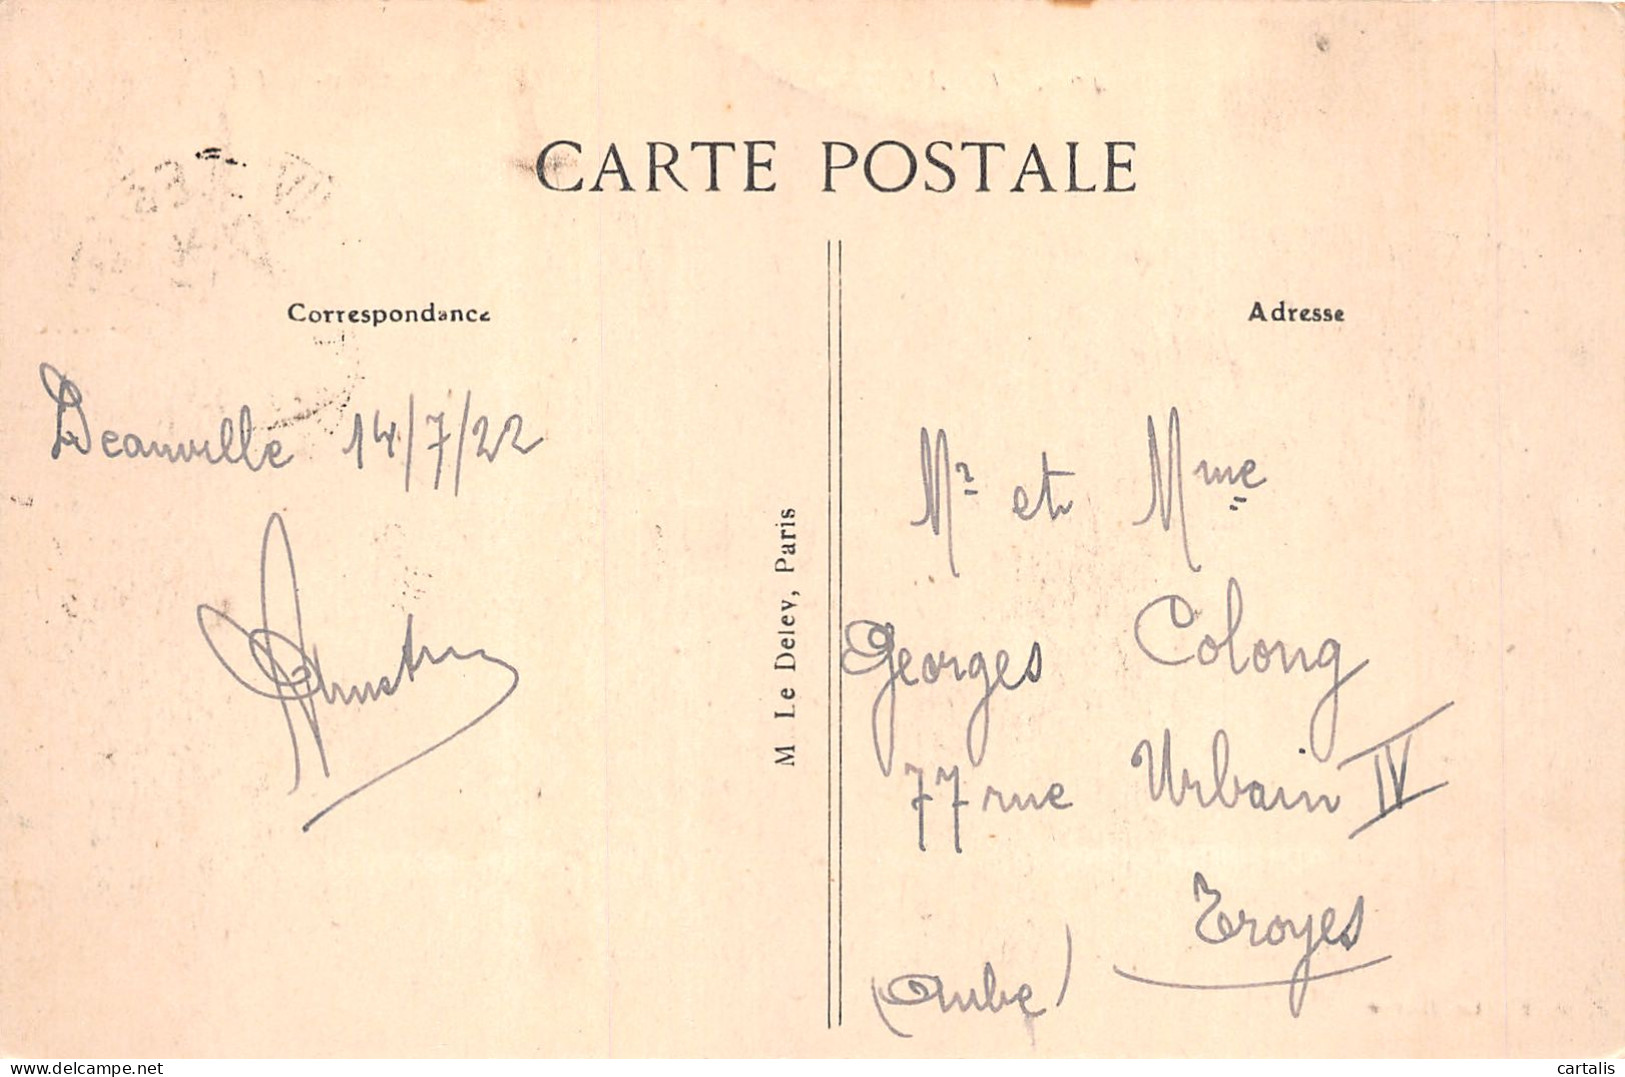 CARTE POSTALE
Correspondance
Deauville 14/7/22
M Le Deley, Paris
Adresse
Mr et Mme
Georges Colong
77 rue Urbain IV
Troyes
(Aube)
delcampe.net
cartalis